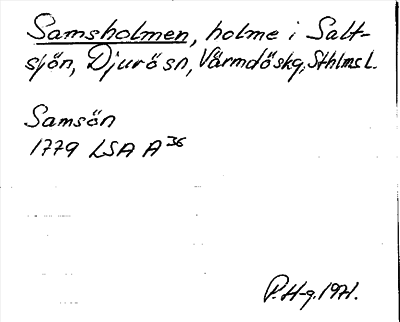 Samsholmen, holme i Salt-
sjön, Djurö sn, Värmdö skg, Sthlms L.
Samsön
1779 LSA A 36
P. H-g. 1971.